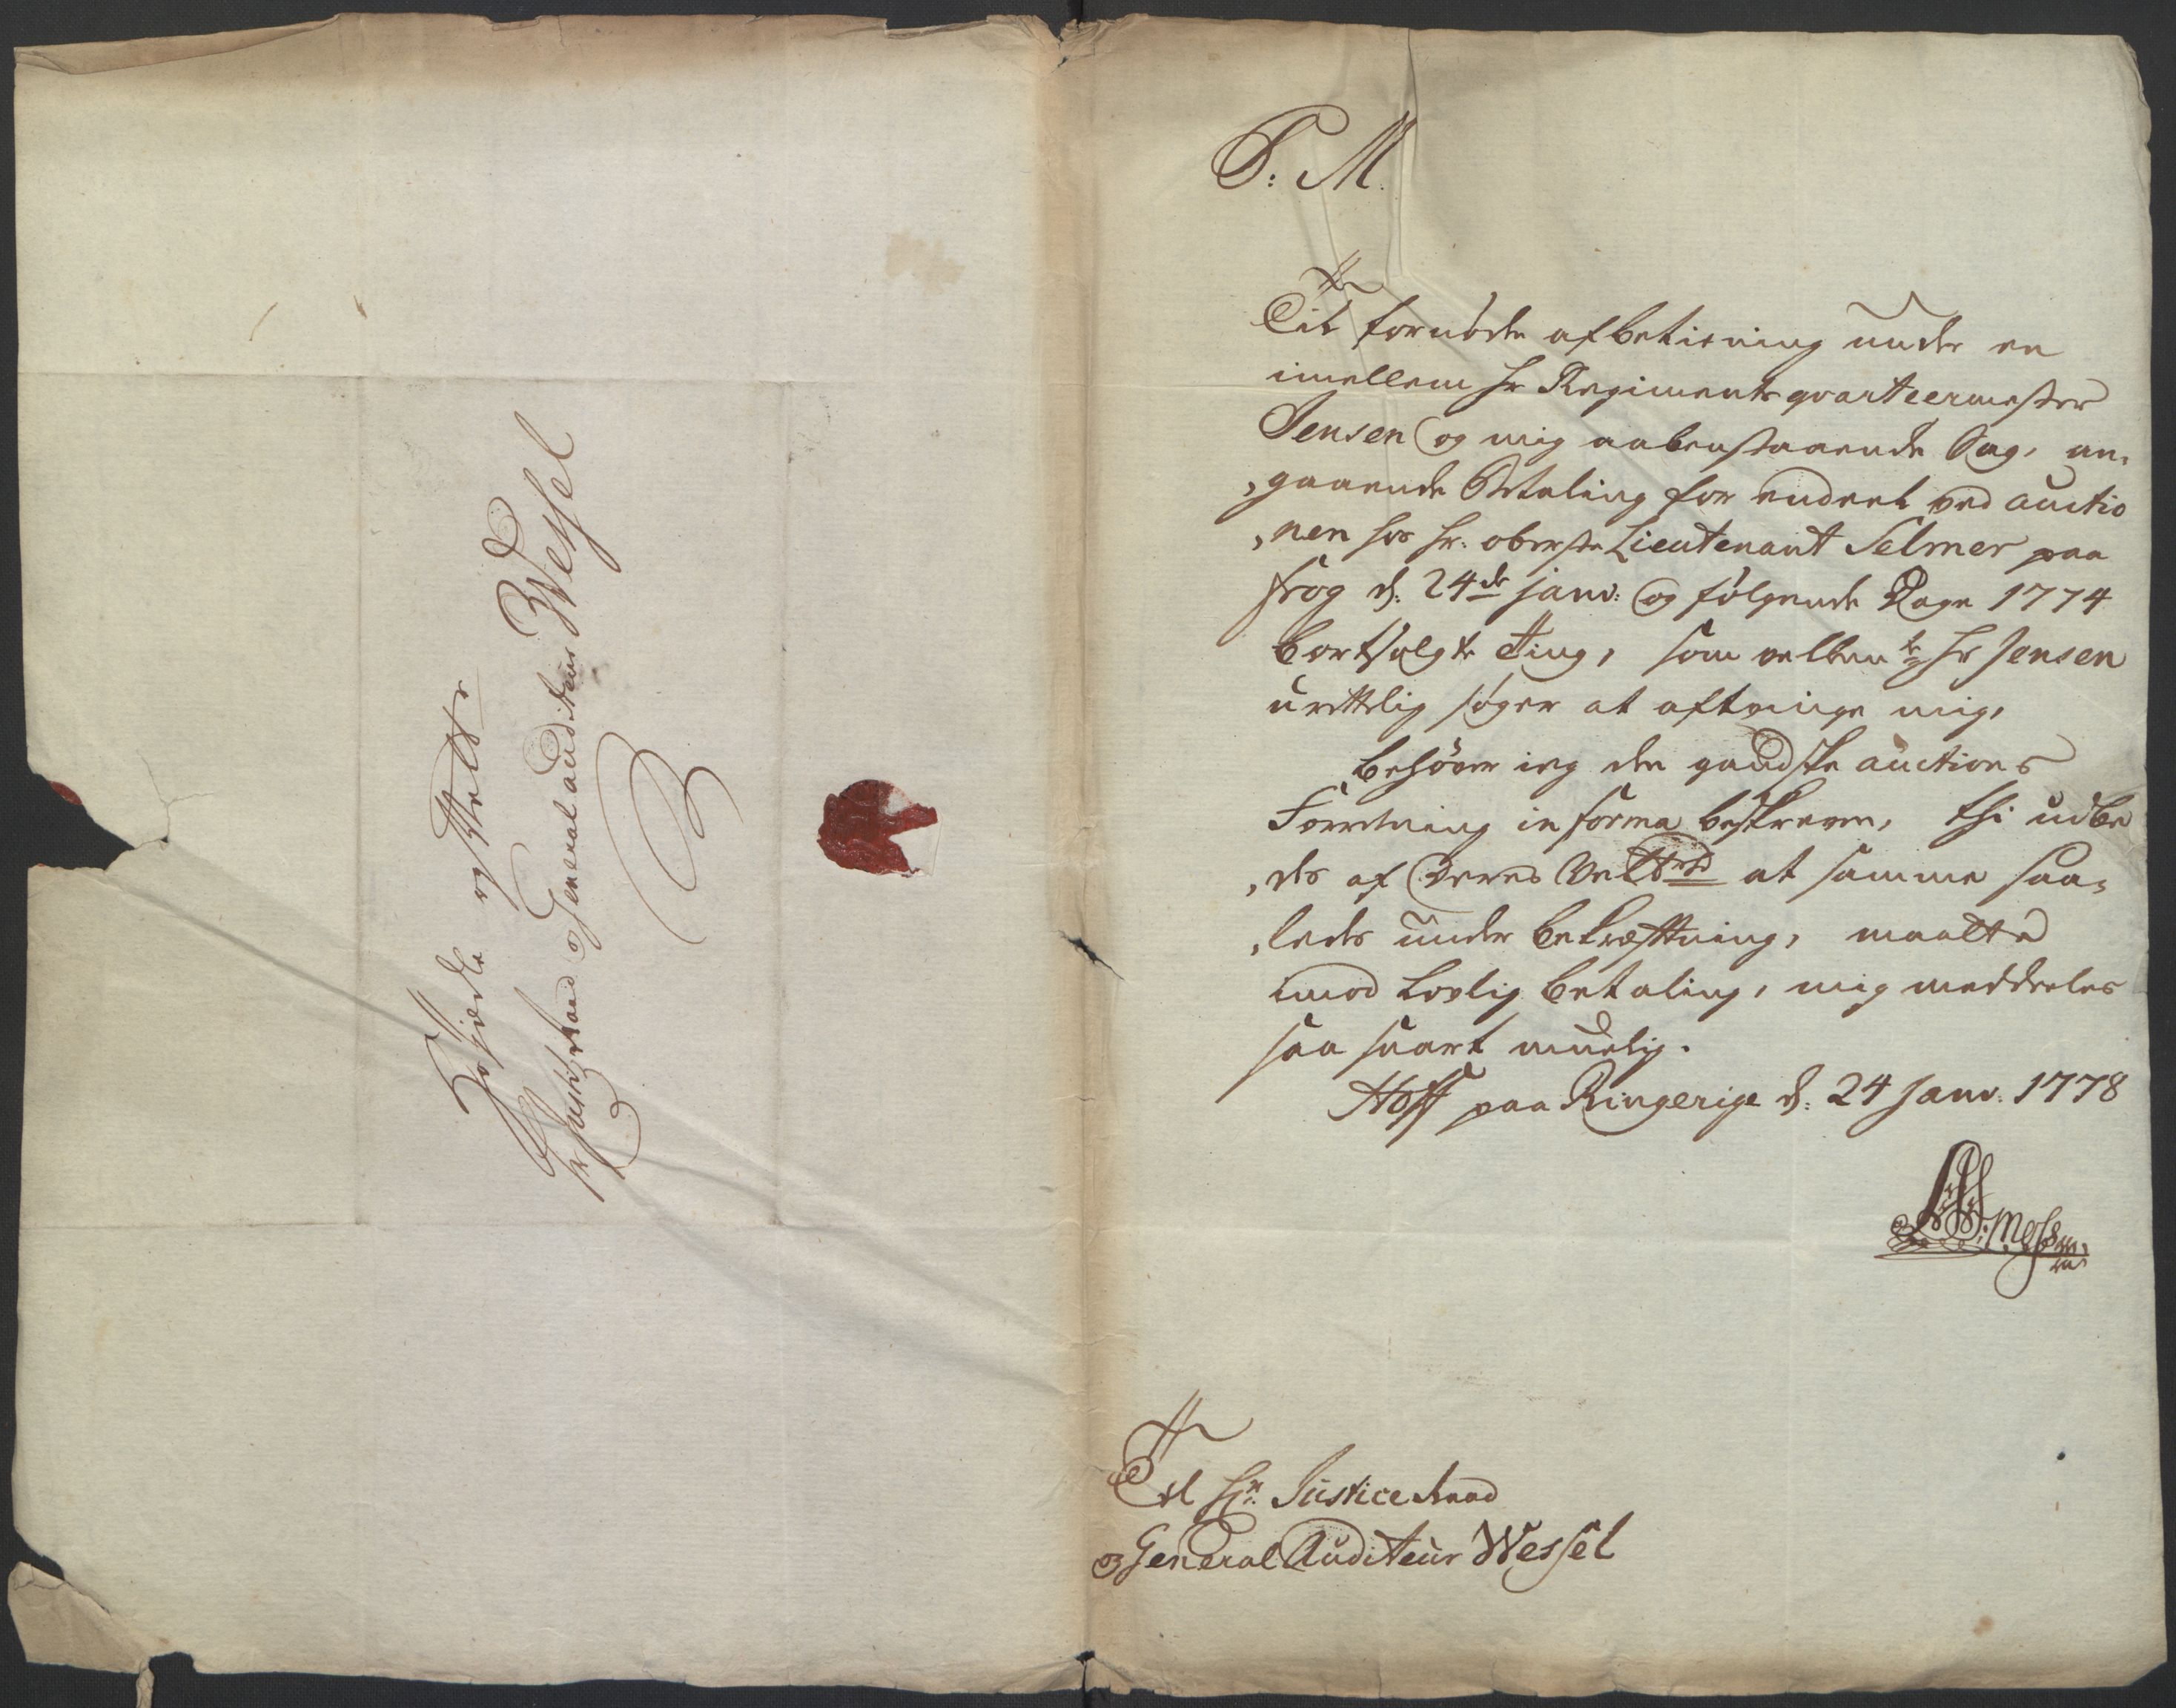 Høyædle og Velb:r
Hr Justitz Raad og General auditeur Wessel
P: M.
Til fornøden afbetiening under en
imellem Hr Regiments qvarteermester
Jensen og mig aabenstaaende Sag, an,
,gaaende Betaling for endeel ved auctio
,nen hos Hr. oberste Lieutenant Selmer paa
frog d: 24de janv: og følgende Dage 1774
bortsolgte Ting, som velbemte Hr Jensen
urettelig søger at aftvinge mig,
behøver ieg den gandske auctions
Forretning in forma beskreven, thi udbe
,des af Deres Velbrhd at samme saa,
,ledes under bekræftning, maatte
imod lovlig betaling, mig meddeeles
saa snart muelig.
Hoff paa Ringerige d: 24 Janv: 1778
Til Hr. Justice Raad
og General Auditeur Wessel